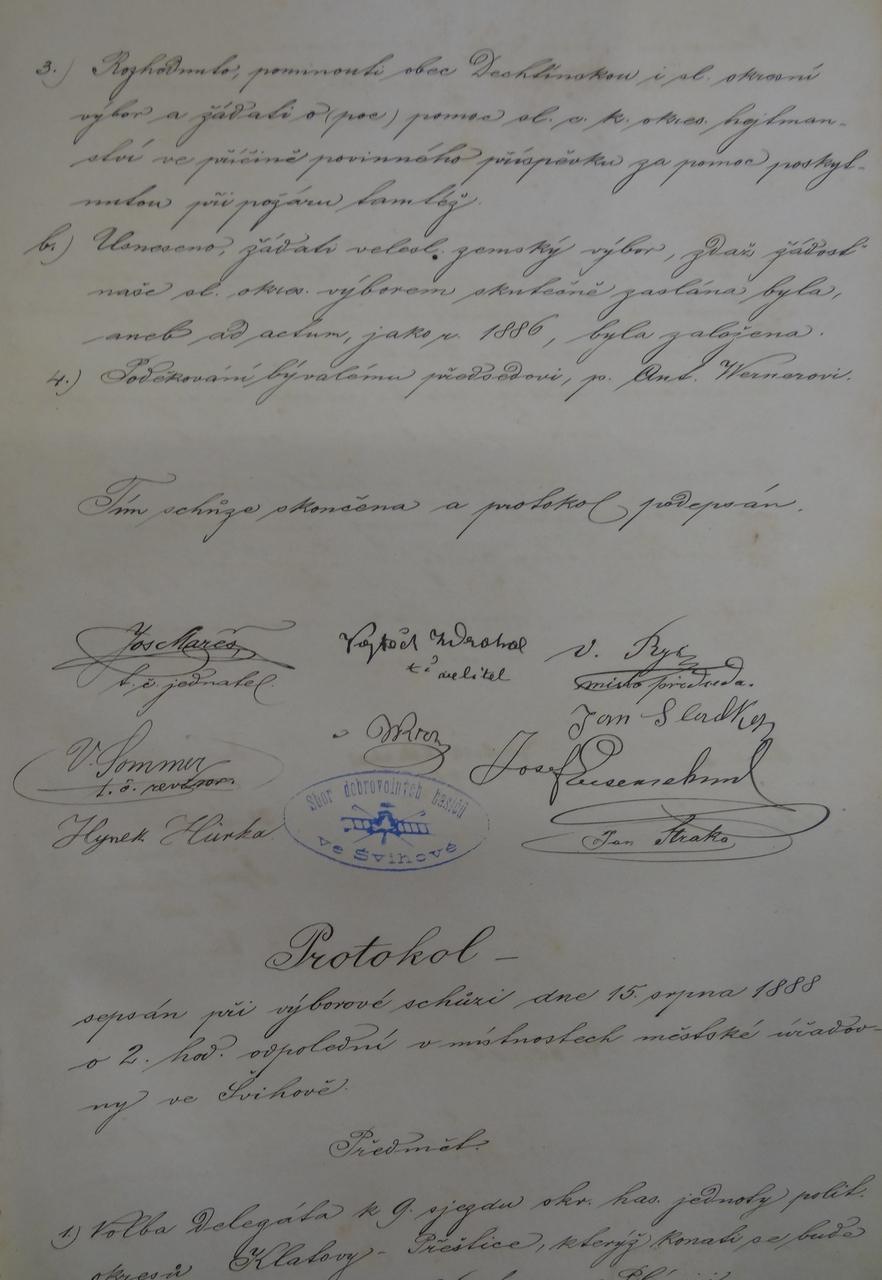 3.) Rozhodnuto, pominouti obec Dechtínskou i sl. okresní
výbor a žádati o (poc) pomoc sl. c. k. okres. hejtman-
ství ve příčině povinného příspěvku za pomoc poskyt-
nutou při požáru tamtéž.
b.) Usneseno, žádati velesl. zemský výbor, zdaž žádost
naše sl. okres. výborem skutečně zaslána byla,
aneb ad actum, jako r. 1886, byla založena.
4.) Poděkování bývalému předsedovi, p. Ant. Wernerovi.
Tím schůze skončena a protokol podepsán.
Jos Mareš
t. č. jednatel.
Vojtěch Zdrahal
t č velitel
V. Ryx
místopředseda.
Jan Sladký
V. Sommer
t. č. revisor.
Josef
Hynek Hůrka
Jan Straka
Sbor dobrovolných hasičů
ve Švihově
Protokol –
sepsán při výborové schůzi dne 15. srpna 1888
o 2. hod. odpolední v místnostech městské úřadov-
ny ve Švihově.
Předmět.
1.) Volba delegáta k 9. sjezdu okr. has. jednoty polit.
okresů Klatovy - Přeštice, kterýž konati se bude